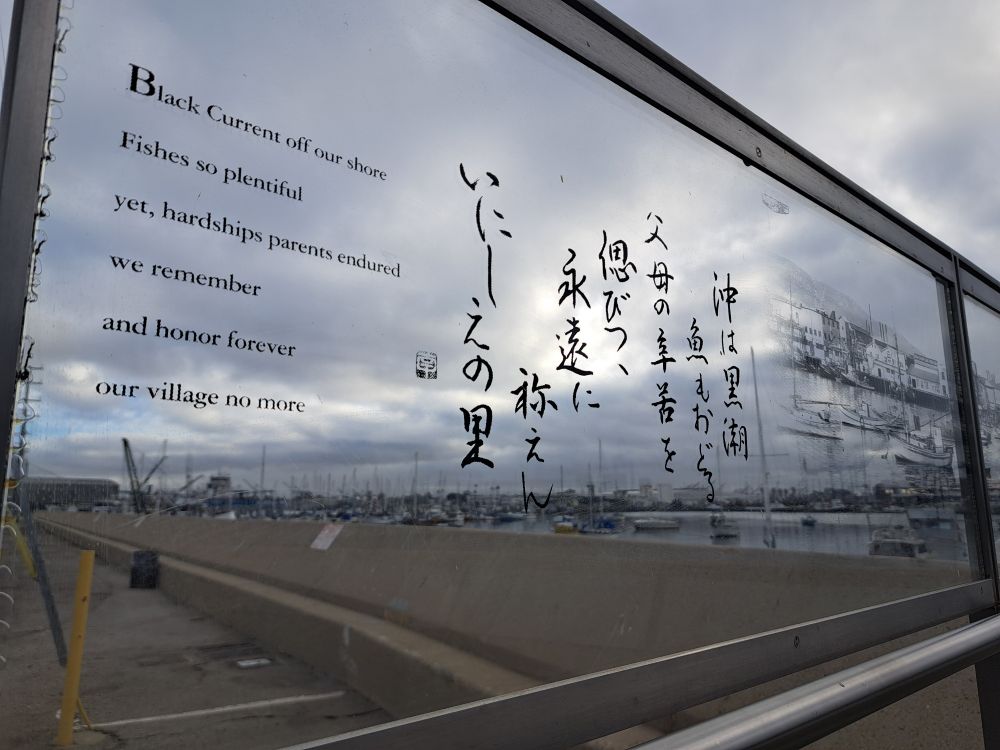 Black Current off our shore
Fishes so plentiful
yet, hardships parents endured
we remember
and honor forever
our village no more
沖は黒潮
魚もおどる
父母の辛苦を
偲びつゝ
永遠に
称えん
いにしえの里